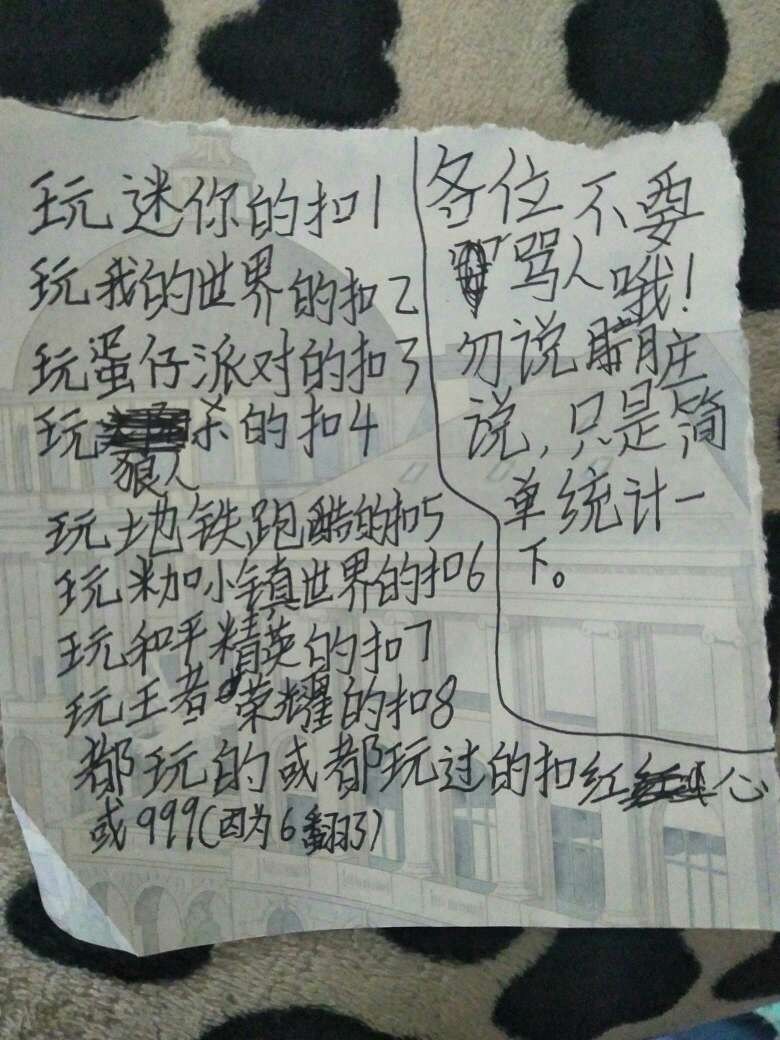 玩迷你的扣1
玩我的世界的扣2
玩蛋仔派对的扣3
玩狼人杀的扣4
玩地铁跑酷的扣5
玩米加小镇世界的扣6
玩和平精英的扣7
玩王者荣耀的扣8
都玩的或都玩过的扣红心
或999(因为6翻了)
各位不要
骂人哦!
勿说脏
说,只是简
单统计一
下。